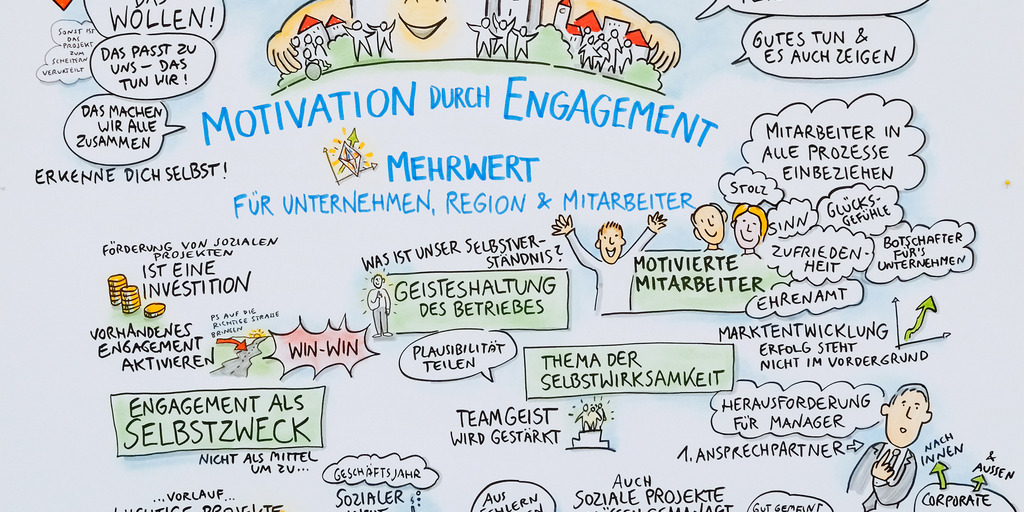 WOLLEN!
SONST IST
DAS
PROJEKT
ZUM
SCHEITERN
VERURTEILT
DAS PASST ZU
UNS – DAS
TUN WIR!
DAS MACHEN
WIR ALLE
ZUSAMMEN
ERKENNE DICH SELBST!
GUTES TUN &
ES AUCH ZEIGEN
MOTIVATION DURCH ENGAGEMENT
MEHRWERT
FÜR UNTERNEHMEN, REGION & MITARBEITER
MITARBEITER IN
ALLE PROZESSE
EINBEZIEHEN
STOLZ
SINN
GLÜCKS-
GEFÜHLE
ZUFRIEDEN-
HEIT
BOTSCHAFTER
FÜR'S
UNTERNEHMEN
EHRENAMT
MOTIVIERTE
MITARBEITER
FÖRDERUNG VON SOZIALEN
PROJEKTEN
IST EINE
INVESTITION
WAS IST UNSER SELBSTVER-
STÄNDNIS?
GEISTESHALTUNG
DES BETRIEBES
VORHANDENES
ENGAGEMENT
AKTIVIEREN
PS AUF DIE
RICHTIGE STRAßE
BRINGEN
WIN-WIN
PLAUSIBILITÄT
TEILEN
THEMA DER
SELBSTWIRKSAMKEIT
MARKTENTWICKLUNG
ERFOLG STEHT
NICHT IM VORDERGRUND
ENGAGEMENT ALS
SELBSTZWECK
NICHT ALS MITTEL
UM ZU...
TEAMGEIST
WIRD GESTÄRKT
HERAUSFORDERUNG
FÜR MANAGER
1. ANSPRECHPARTNER
NACH
INNEN
& AUSSEN
CORPORATE
GESCHÄFTSJAHR
SOZIALER
...VORLAUF...
WICHTIGE PROJEKTE
AUS
FEHLERN
AUCH
SOZIALE PROJEKTE
MÜSSEN GEMANAGT
GUT GEMEINT